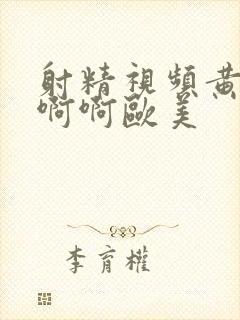 射精視頻黃
啊啊歐美
李育權